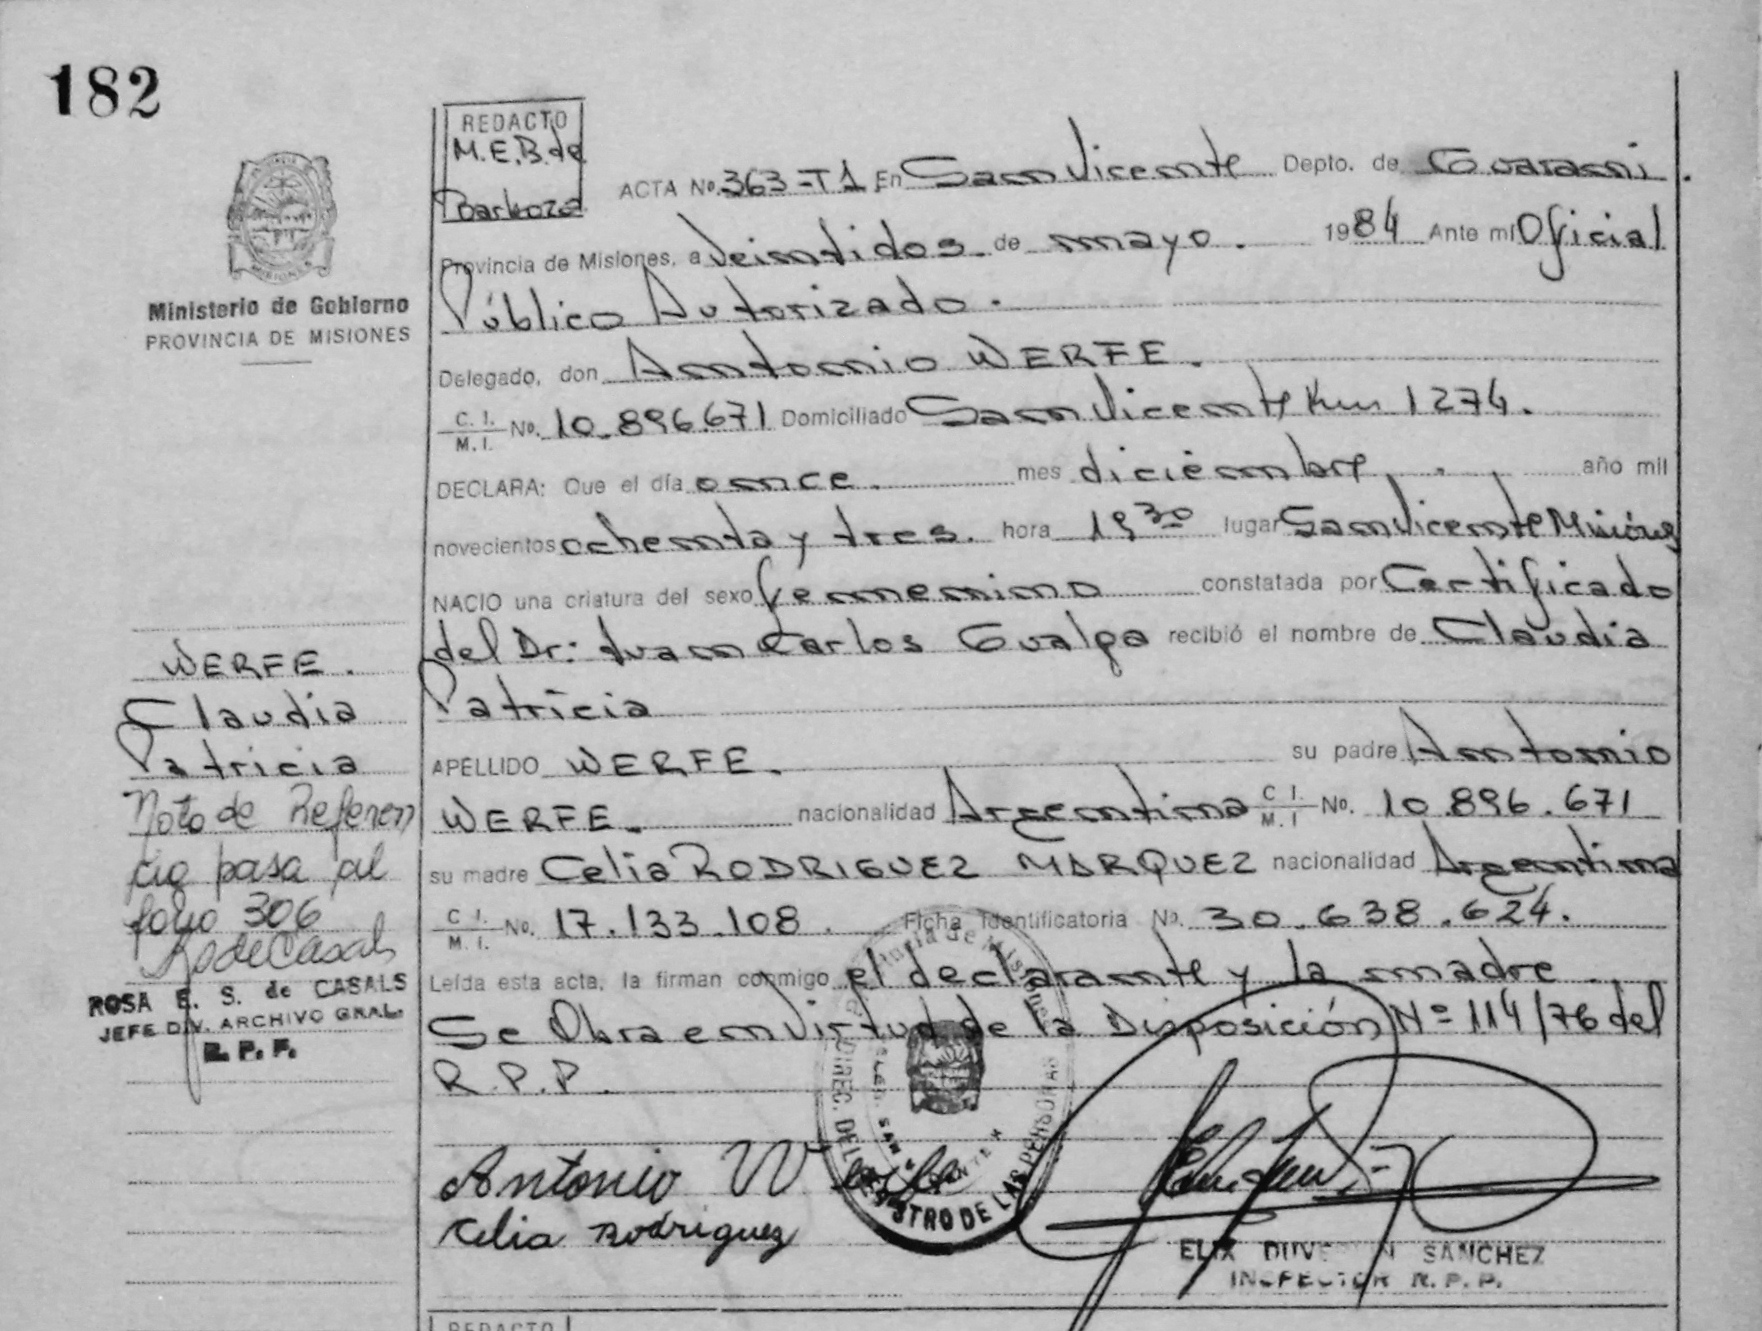 182
REDACTO
M.E.B. de
Barboza
ACTA Nº 363-T1 En San Vicente Depto. de Guaraní.
Provincia de Misiones, a Veintidos de mayo. 1984 Ante mí Oficial
Público Autorizado.
Delegado, don Antonio WERFE.
C. I. / M. I. Nº. 10.896.671 Domiciliado San Vicente Km 1274.
DECLARA: Que el día once. mes diciembre. año mil
novecientos ochenta y tres. hora 19 30 lugar San Vicente Misiones
NACIO una criatura del sexo femenino constatada por Certificado
del Dr: Juan Carlos Gualpa recibió el nombre de Claudia
Patricia
APELLIDO WERFE. su padre Antonio
WERFE. nacionalidad Argentina C. I. / M. I. Nº. 10.896.671
su madre Celia RODRIGUEZ MARQUEZ nacionalidad Argentina
C. I. / M. I. Nº. 17.133.108. Ficha Identificatoria Nº. 30.638.624.
Leída esta acta, la firman conmigo el declarante y la madre.
Se Obra en Virtud de la Disposición Nº 114/76 del
R.P.P.
Antonio Werfe
Celia Rodriguez
ELIX SANCHEZ
INSPECTOR R. P. P.
Ministerio de Gobierno
PROVINCIA DE MISIONES
WERFE.
Claudia
Patricia
Nota de Referen
cia pasa al
folio 306
RdeCasals
ROSA E. S. de CASALS
JEFE DIV. ARCHIVO GRAL.
R. P. P.
Provincia de Misiones
DIREC. DEL REGISTRO DE LAS PERSONAS
MISIONES
REDACTO